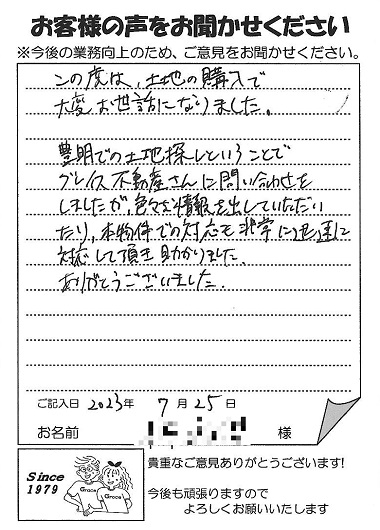 お客様の声をお聞かせください
※今後の業務向上のため、ご意見をお聞かせください。
この度は、土地の購入で
大変お世話になりました。
豊明での土地探しということで
グレイス不動産さんに問い合わせを
しましたが、色々な情報を出していただい
たり、本物件での対応も非常に迅速に
対応して頂き助かりました。
ありがとうございました。
ご記入日 2023年 7月25日
お名前 様
Since
1979
Grace
Grace
貴重なご意見ありがとうございます!
今後も頑張りますので
よろしくお願いいたします